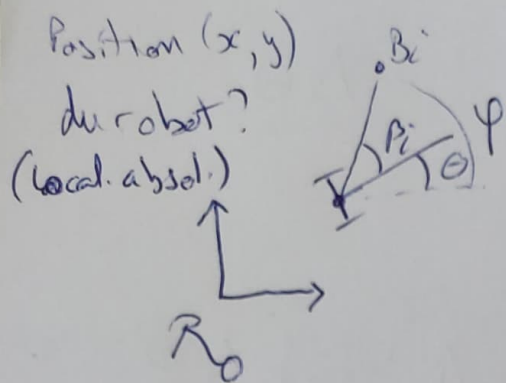 Position (x, y)
du robot?
(local. absol.)
Bi
βi
θ
φ
R0